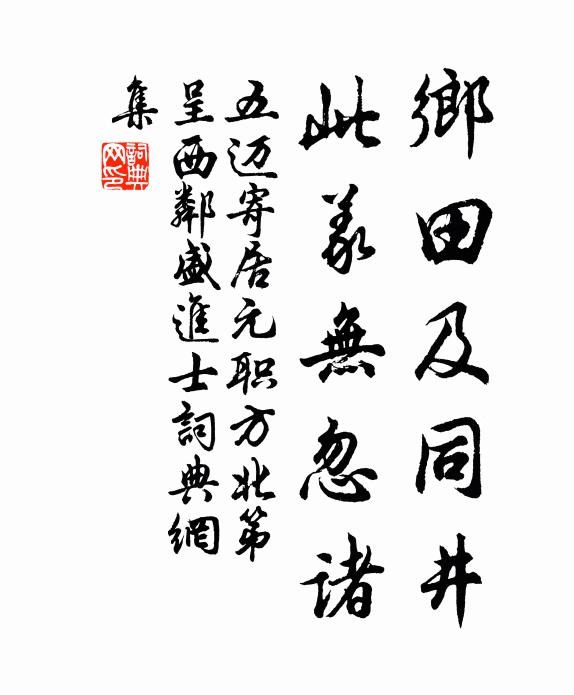 鄉田及同井
此義無忽諸
五迈寄居元职方北第
呈西鄰盛進士詞典網
集
詞典
网印